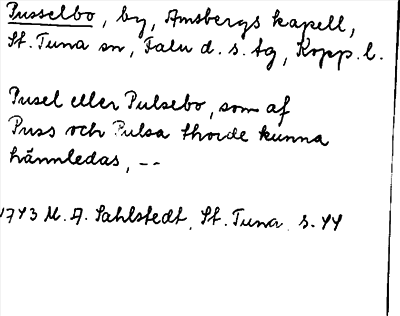 Pusselbo, by, Amsbergs kapell,
St. Tuna sn, Falu d. s. tg, Kopp. l.
Pusel eller Pulsebo, som af
Puss och Pulsa thorde kunna
härmledas, --
1743 M. A. Sahlstedt, St. Tuna s. 44